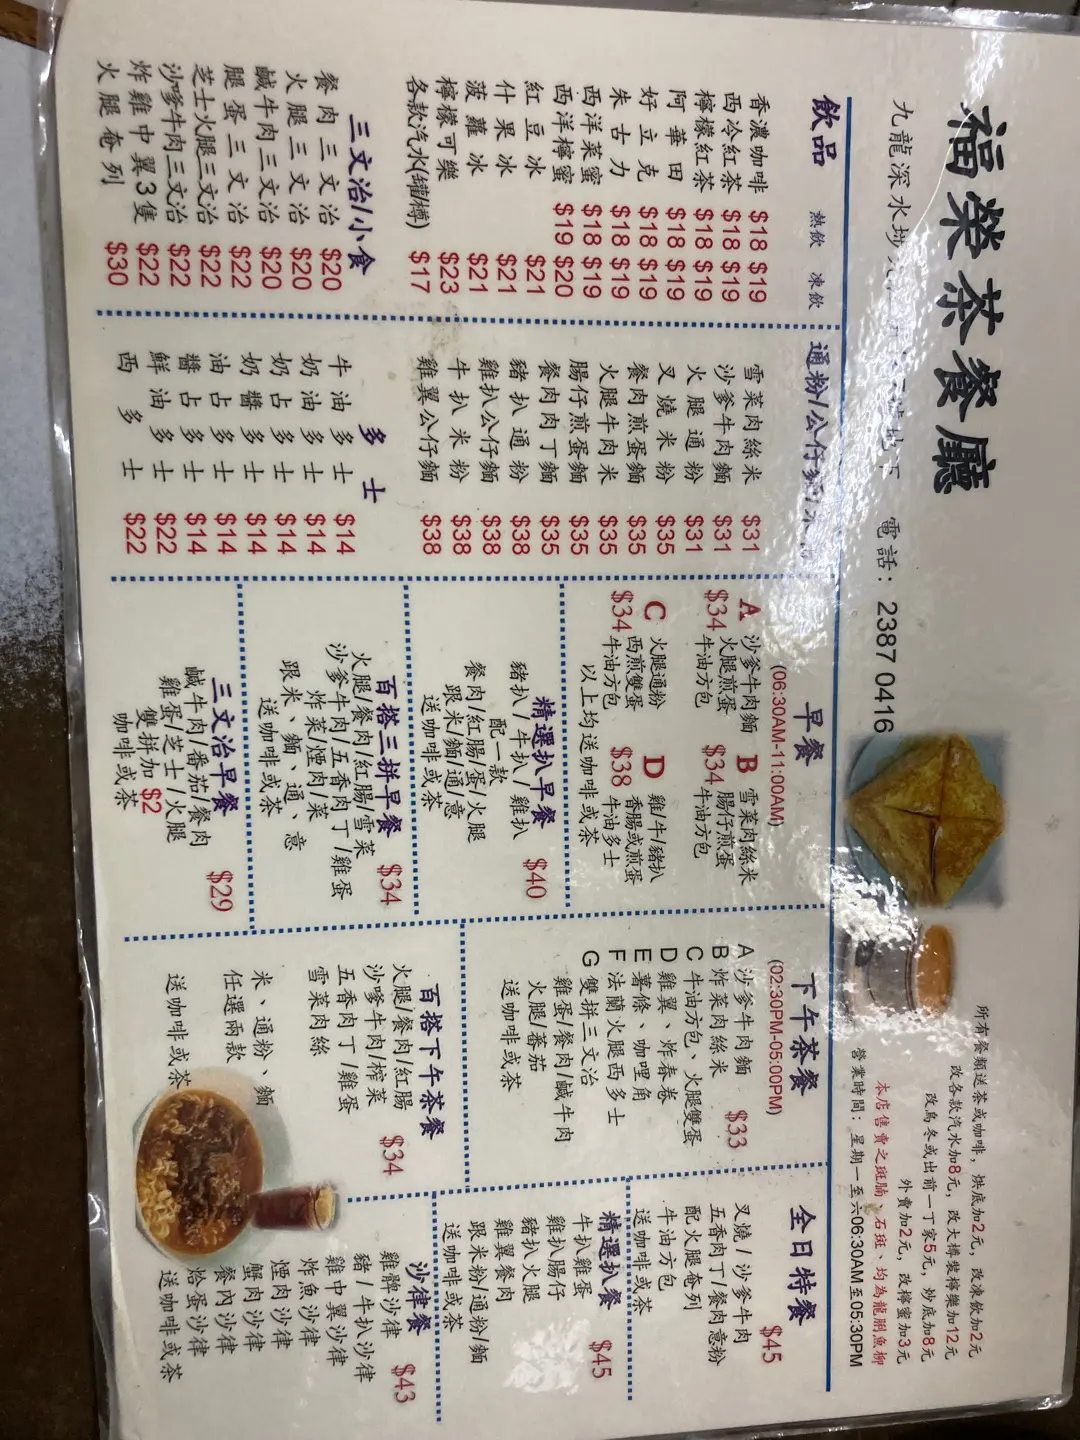 福榮茶餐廳
九龍深水埗
地下
電話：2387 0416
所有餐類送茶或咖啡，烘底加2元，改凍飲加2元
改各款汽水加8元，改大樽裝檸樂加12元
改烏冬或出前一丁家5元，炒底加8元
外賣加2元，改檸蜜加3元
本店售賣之斑腩、石斑、均為龍脷魚柳
營業時間：星期一至六06:30AM至05:30PM
飲品 熱飲 凍飲
香濃咖啡 $18 $19
西冷紅茶 $18 $19
檸檬紅茶 $18 $19
阿華田 $18 $19
好立克 $18 $19
朱古力 $18 $19
西洋菜蜜 $18 $19
西洋檸蜜 $19 $20
紅豆冰 $21
什果冰 $21
菠蘿冰 $21
檸檬可樂 $23
各款汽水(罐/樽) $17
三文治/小食
餐肉三文治 $20
火腿三文治 $20
鹹牛肉三文治 $20
腿蛋三文治 $22
芝士火腿三文治 $22
沙嗲牛肉三文治 $22
炸雞中翼3隻 $22
火腿奄列 $30
通粉/公仔麵/米粉
雪菜肉絲米 $31
沙爹牛肉麵 $31
火腿通粉 $31
叉燒米粉 $35
餐肉煎蛋麵 $35
火腿牛肉米 $35
腸仔煎蛋麵 $35
餐肉肉丁麵 $35
豬扒通粉 $38
雞扒公仔麵 $38
牛扒米粉 $38
雞翼公仔麵 $38
多士
牛油多士 $14
奶油多士 $14
奶占多士 $14
奶醬多士 $14
油占多士 $14
醬占多士 $14
鮮油多士 $22
西多士 $22
早餐
(06:30AM-11:00AM)
A 沙爹牛肉麵
火腿煎蛋
$34 牛油方包
B 雪菜肉絲米
腸仔煎蛋
$34 牛油方包
C 火腿通粉
西煎雙蛋
$34 牛油方包
D 雞/牛/豬扒
香腸或煎蛋
$38 牛油多士
以上均送咖啡或茶
精選扒早餐 $40
豬扒/牛扒/雞扒
配一款
餐肉/紅腸/蛋/火腿
跟米/麵/通/意
送咖啡或茶
百搭三拼早餐 $34
火腿/餐肉/紅腸/雪菜
沙爹牛肉/五香肉丁/雞蛋
炸菜/煙肉/菜
跟米、麵、通、意
送咖啡或茶
三文治早餐 $29
鹹牛肉/番茄/餐肉
雞蛋/芝士/火腿
雙拼加$2
咖啡或茶
下午茶餐
(02:30PM-05:00PM)
$33
A 沙爹牛肉麵
B 炸菜肉絲米
C 牛油方包、火腿雙蛋
D 雞翼、炸春卷
E 薯條、咖哩角
F 法蘭火腿西多士
G 雙拼三文治
雞蛋/餐肉/鹹牛肉
火腿/蕃茄
送咖啡或茶
百搭下午茶餐 $34
火腿/餐肉/紅腸
沙嗲牛肉/榨菜
五香肉丁/雞蛋
雪菜肉絲
米、通粉、麵
任選兩款
送咖啡或茶
全日特餐 $45
叉燒/沙爹牛肉
五香肉丁/餐肉意粉
配火腿奄列
牛油方包
送咖啡或茶
精選扒餐 $45
牛扒雞蛋
雞扒腸仔
豬扒火腿
雞翼餐肉
跟米粉/通粉/麵
送咖啡或茶
沙律餐 $43
雞髀沙律
豬/牛扒沙律
雞中翼沙律
炸魚沙律
煙肉沙律
蟹肉沙律
餐內沙律
烚蛋沙律
送咖啡或茶